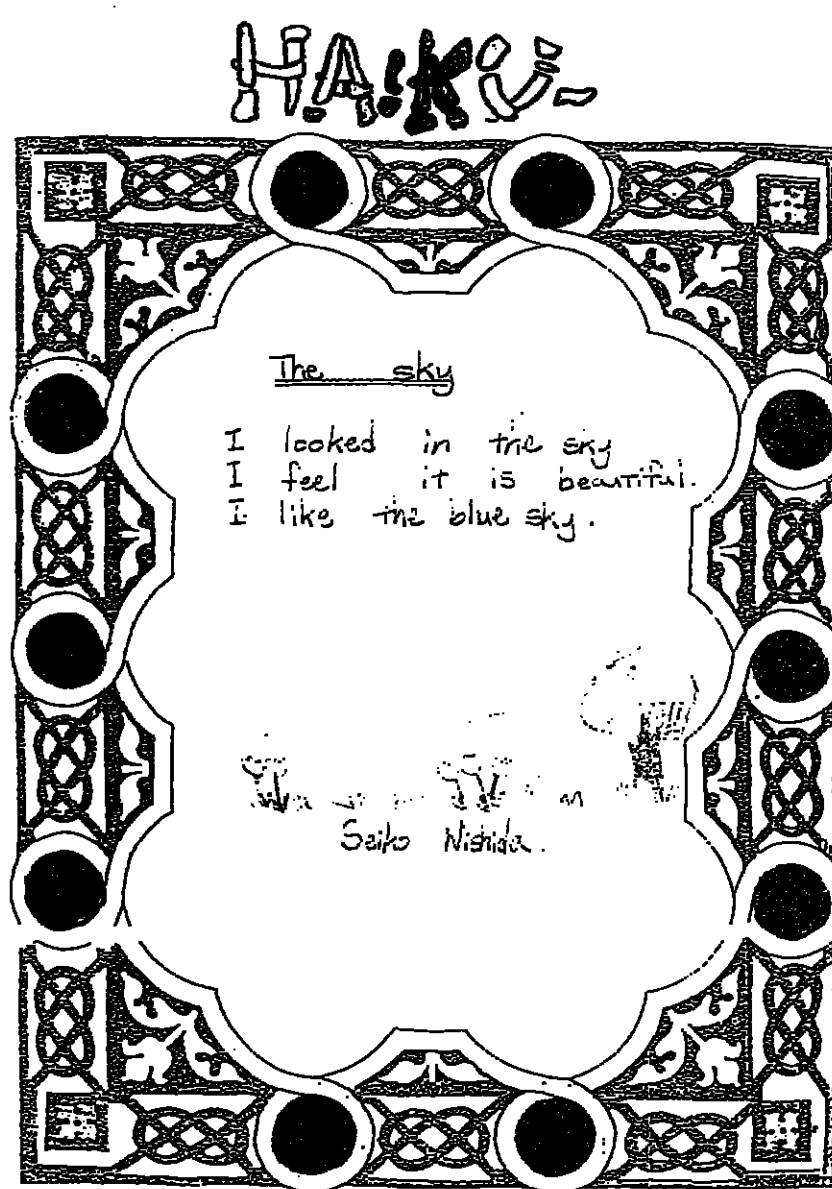 HAIKU-
The sky
I looked in the sky
I feel it is beautiful.
I like the blue sky.
Seiko Nishida.